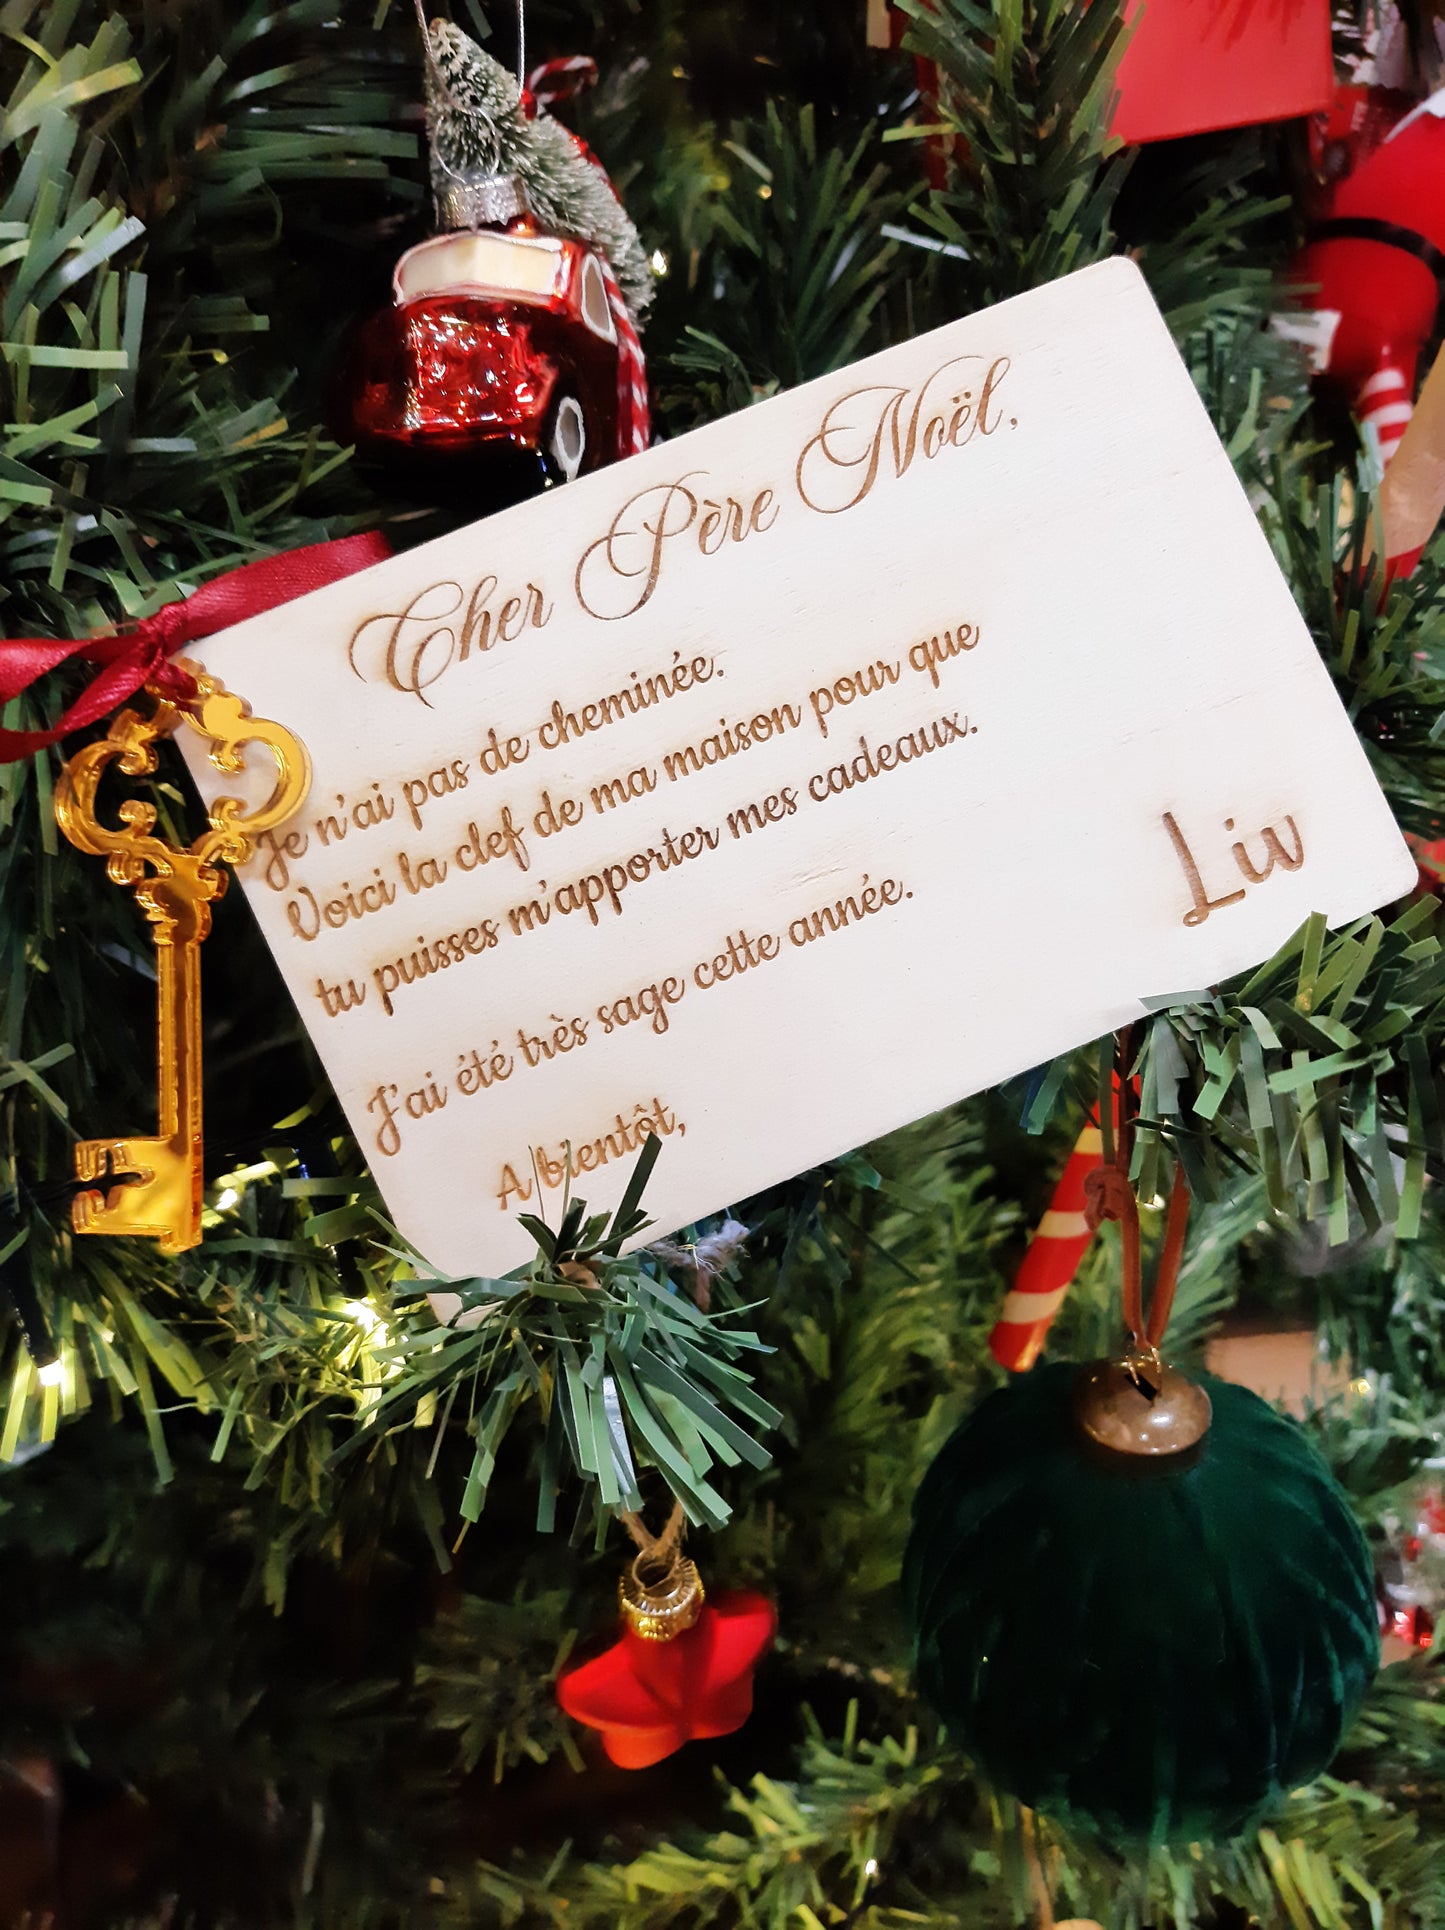 Cher Père Noël,
Je n'ai pas de cheminée.
Voici la clef de ma maison pour que
tu puisses m'apporter mes cadeaux.
J'ai été très sage cette année.
A bientôt,
Liv